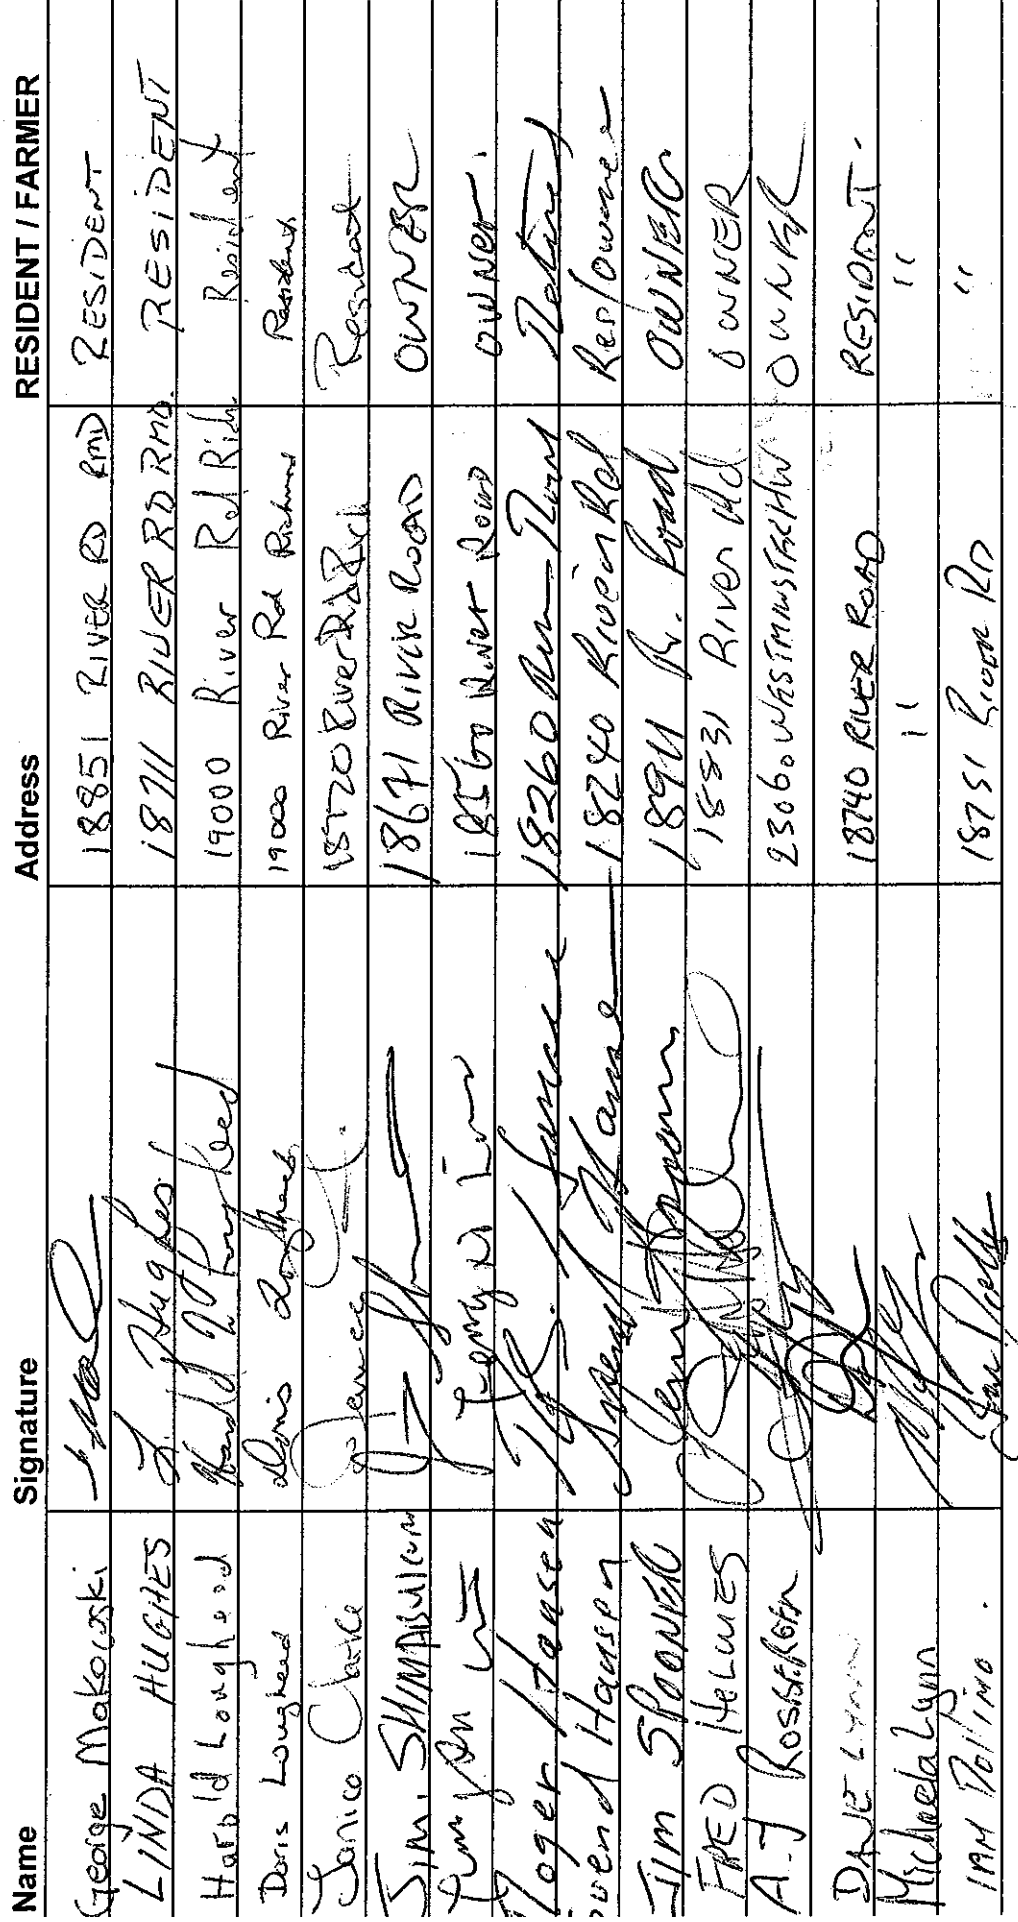 Name Signature Address RESIDENT / FARMER
George Makowski 18851 RIVER RD RMD RESIDENT
LINDA HUGHES L. Hughes 18711 RIVER RD RMD. RESIDENT
Harold Lougheed Harold Lougheed 19000 River Rd Rich. Resident
Doris Lougheed Doris Lougheed 19000 River Rd Richmond Resident
Janice Clarke Janice C. 18720 River Rd Rich Resident
Jim. 18671 River ROAD OWNER
18560 River Road OWNER.
Roger Hansen 18260
Svend Hansen Svend Hansen 18240 River Rd Res/owner
Jim SPOONER 18911 R. Road OWNER
FRED HOLMES 18831 River Rd OWNER
A-J 23060 WESTMINSTER HW OWNER
DANE LYNN 18740 RIVER ROAD RESIDENT.
Michaela Lynn " "
18751 RIVER RD "